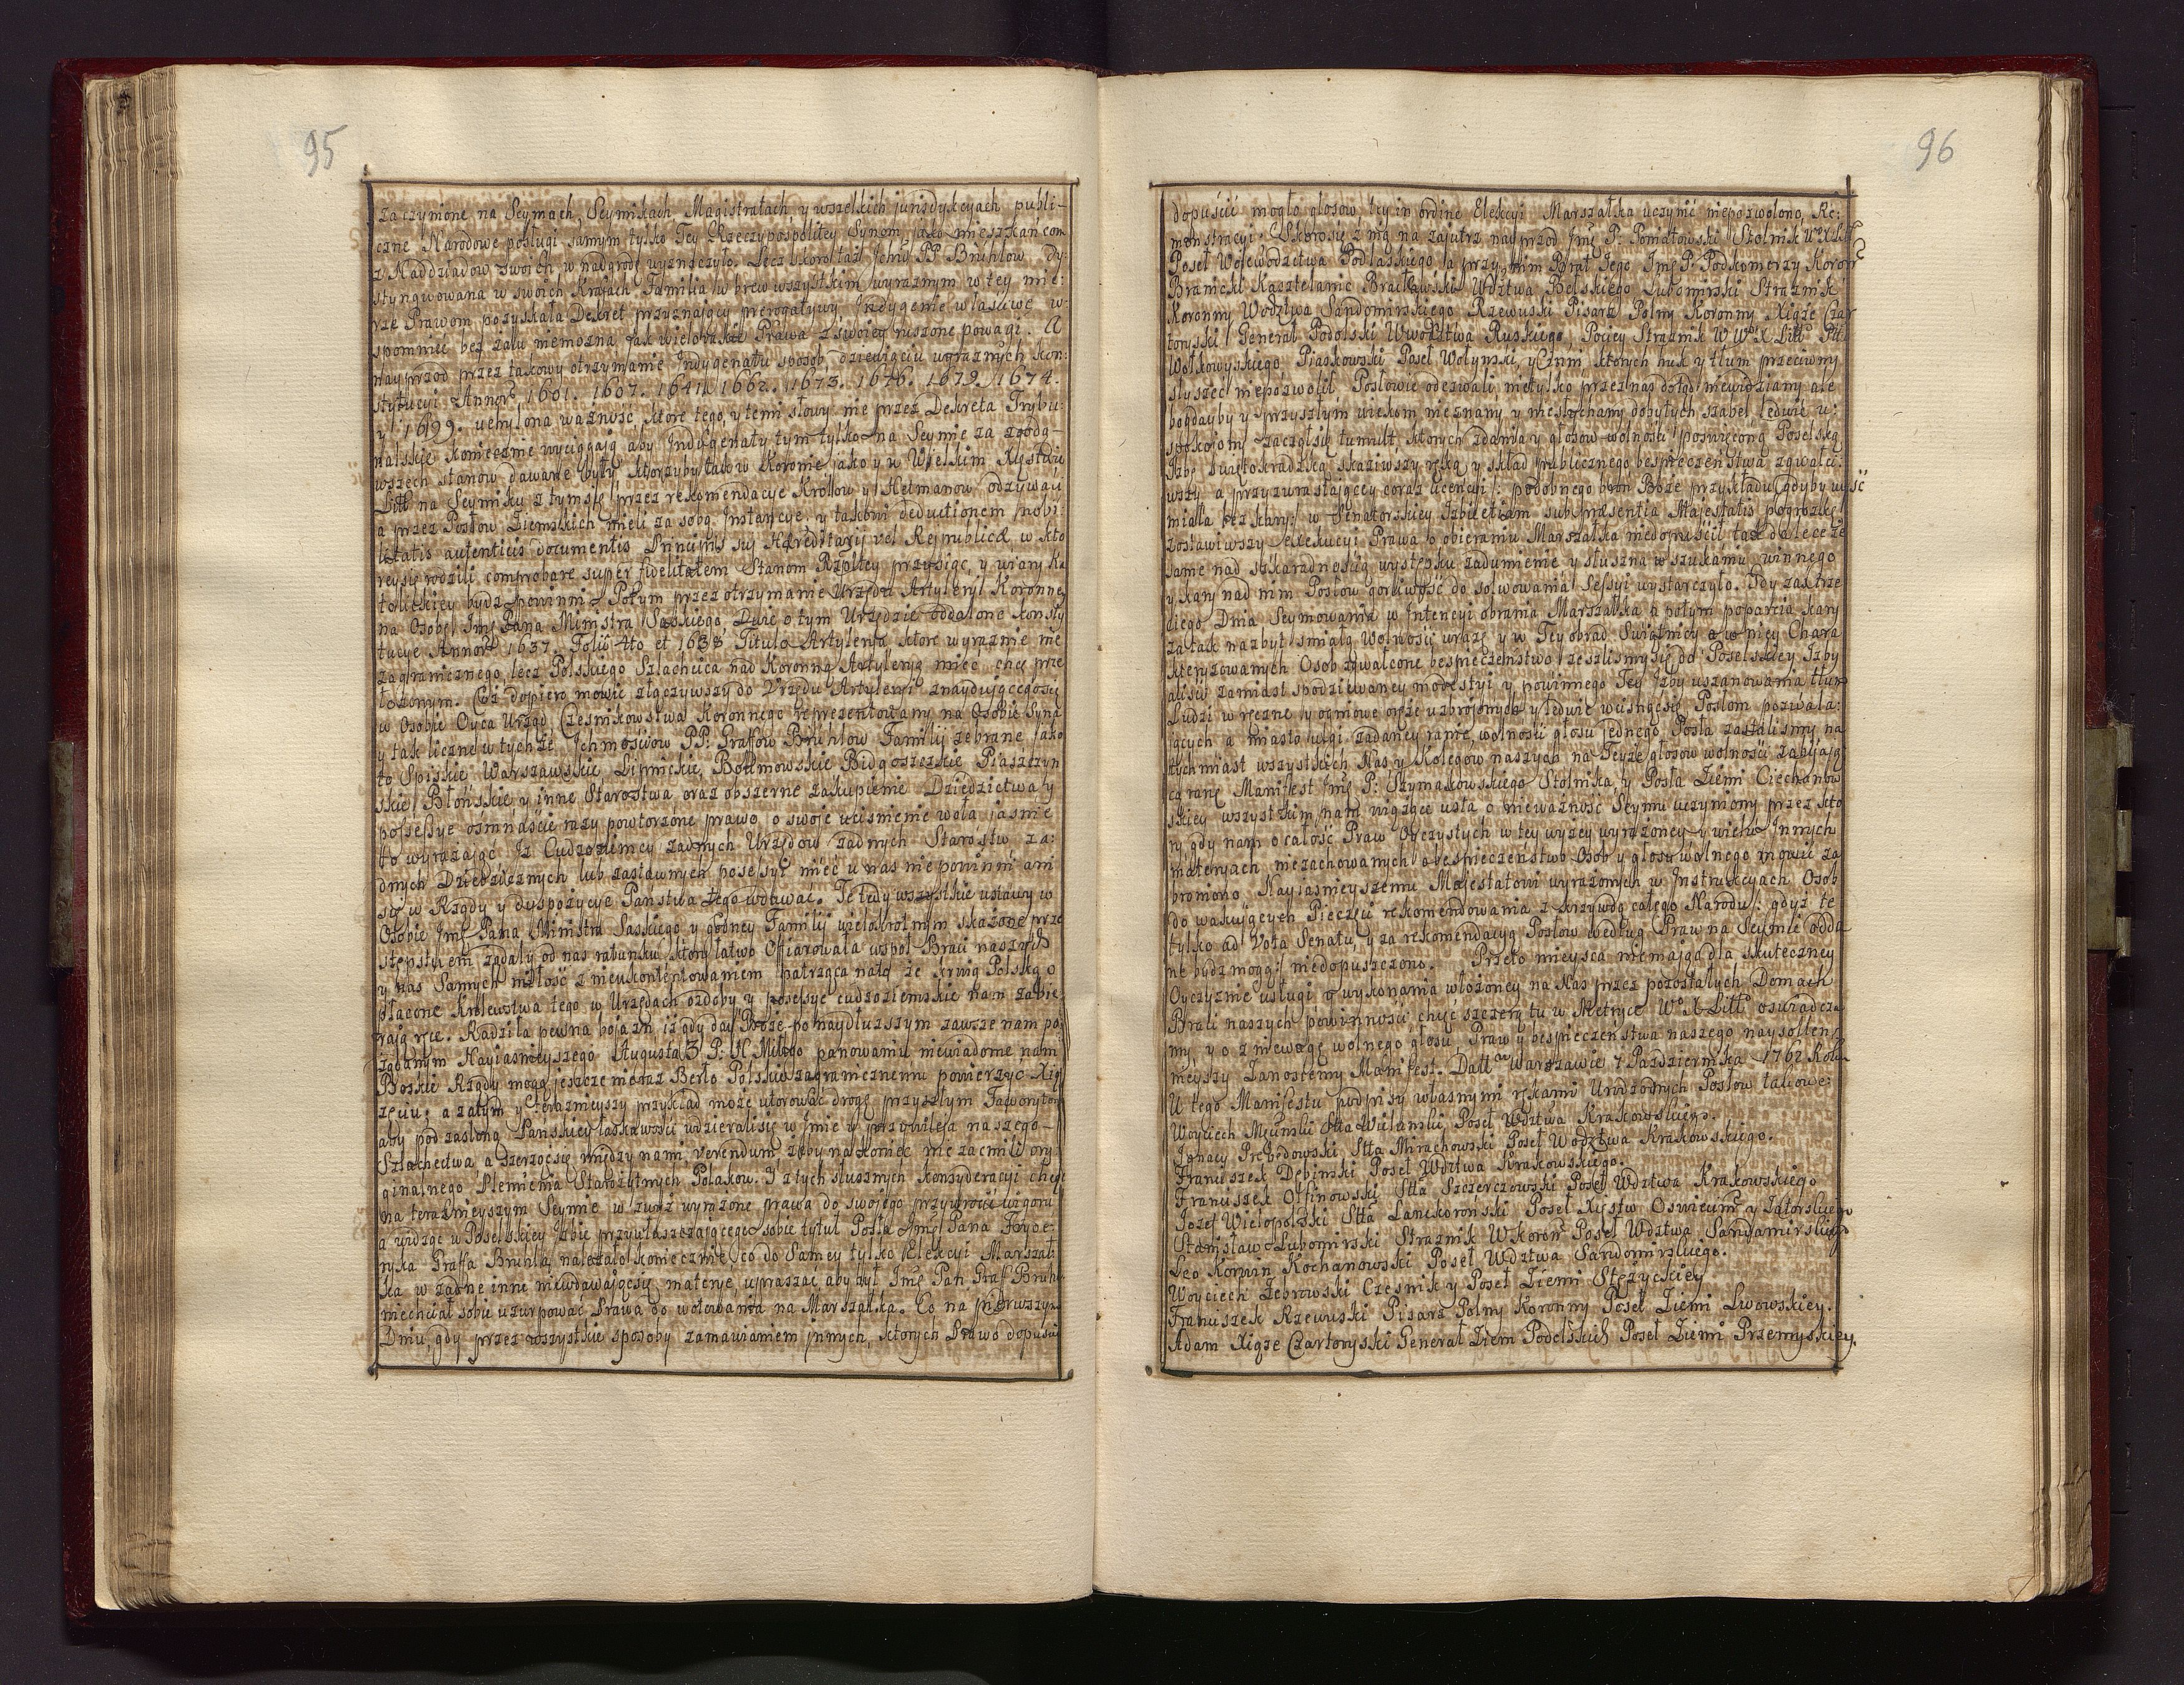 95
za czynione na Seymach, Seymikach Magistratach y wszelkich jurisdykcyach publi-
czne Narodowe posługi samym tylko Tey Rzeczypospolitey Synom jako mieszkańcom
z Naddziadow swoich, w nadgrodę wyznaczyło. Lecz skoro taż Ichmć PP Bruhlow Dy-
styngwowana w swoich Kraiach Familia w brew wszystkim wyraznym w tey mie:
rze Prawom pozyskała Dekret przyznający prerogatywy Indygenie własciwe w-
spomnieć bez żalu niemożna jak wielorakie Prawa z swoiey ruszone powagi. A
nayprzod przez takowy otrzymanie Indygenatu sposob dziewięciu wyraznych kon:
stytucyi Annor 1601. 1607. 1641. 1662. 1673. 1676. 1679. 1674.
y 1699. uchylona ważność, ktore tego, y temi słowy nie przez Dekreta Trybu:
nalskie koniecznie wyciągaią aby Indygenaty tym tylko na Seymie za zgodą-
wszech stanow dawane były, ktorzyby tak w Koronie jako y w Wielkim Xięstwie
Litt na Seymiku z tym się przez rekomendacye Krolow y Hetmanow odzywali
a przez Posłow Ziemskich mieli za sobą Instancye y takowi deductionem nobi:
litatis autenticis documentis Principis sui Hæreditarij vel Reipublicæ w kto
rey się rodzili comprobare super fidelitatem Stanom Rzpltey przysiąc, y wiary Ka
tolickiey bydz powinni. Potym przez otrzymanie Urzędu Artyleryi Koronney
na Osobę Imę Pana Ministra Saskiego, Dwie o tym Urzędzie oddalone konsty
tucye Annor 1637. Folio 4to et 1638 Titulo Artylerya ktore wyraznie nie
zagranicznego lecz Polskiego Szlachcica nad Koronną Artyleryą mieć chcą prze
łożonym. Coż dopiero mowić złączywszy do Urzędu Artyleryi znayduiącego się
w Osobie Oyca Urząd Czesnikowstwa Koronnego reprezentowany na Osobie Syna
y tak liczne w tychże Ichmościow PP: Graffow Bruhlow Familij zebrane jako
to Spiskie Warszawskie Lipnickie, Bolimowskie Bidgoszczkie Piaseczyn
skie Błońskie y inne Starostwa oraz obszerne zakupienie Dziedzictwa y
possessye osmnaście razy powtorzone prawo, o swoje ucisnienie woła jasnie
to wyrażaiąc Iż Cudzoziemcy żadnych Urzędow żadnych Starostw ża:
dnych Dziedzicznych lub zastawnych posessyi mieć u nas nie powinni ani
się w Rządy y dyspozycye Państwa tego wdawać. Te tedy wszystkie ustawy w
Osobie Imę Pana Ministra Saskiego y godney Familij wielokrotnym skażone prze
stępstwem żądały od nas ratunku, ktory łatwo Offiarowała wspoł Braci naszych
y nas Samych miłość z nieukontentowaniem patrząca na to że krwią Polską o
płacone Krolewstwa tego w Urzędach ozdoby y posessye cudzoziemskie nam zabie
raią ręce. Radziła pewna bojazn, iż gdy day Boże po naydłuższym zawsze nam po:
żądanym Nayiasnieyszego Augusta 3 P: N Miłgo panowaniu niewiadome nam
Boskie Rządy mogą jeszcze nieraz Berło Polskie zagranicznemu powierzyć Xią
żęciu, a zatym y teraznieyszy przykład może utorować drogę przyszłym Faworytom
aby pod zasłoną Pańskiey łaskawości udzierali się w Imie y przywileia naszego-
Szlachectwa a szerząc się między nami, verendum żeby nakoniec nie zacmili ory
ginalnego Plemienia Starożytnych Polakow. I z tych słusznych konsyderacyi chcąc
na teraznieyszym Seymie w zwyż wyrażone prawa do swojego przywrocić wigoru
a widząc w Poselskiey Izbie przywłaszczaiącego sobie tytuł Posła Imę Pana Fryde
ryka Graffa Bruhla, należało koniecznie co do Samey tylko Elekcyi Marszał
ka w żadne inne niewdawaiąc się materye, upraszać, aby był Imę Pan Graff Bruhl
niechciał sobie uzurpować Prawa do wotowania na Marszałka. Co na pierwszym
Dniu, gdy przez wszystkie sposoby zamawianiem innych, ktorych Prawo dopuści
96
dopuścić mogło głosow tey in ordine Elekcyi Marszałka uczynić niepozwolono, Re:
monstracyi. Skoro się z nią na zajutrz nayprzod Imę P: Poniatowski Stolnik W X Litt
Poseł Wojewodztwa Podlaskiego a przy nim Brat Jego Imę P: Podkomorzy Koron
Branicki Kasztelanic Bracławski Wdztwa Bełskiego Lubomirski Strażnik
Koronny Wodztwa Sandomirskiego Rzewuski Pisarz Polny Koronny Xiąże Czar
toryski Generał Podolski Wwodztwa Ruskiego, Pociey Strażnik W W X Litt Ptu
Wołkowyskiego Piaskowski Poseł Wołynski, y Czmi, ktorych huk y tłum przeciwny
słyszeć niepozwolił Posłowie odezwali, nietylko przez nas dotąd niewidziany ale
bogdayby y przyszłym wiekom nieznany y niesłychany dobytych szabel ledwie u:
spokoiony zaczął się tumult, ktorych zdania y głosow wolności poswięconą Poselską
Izbę swiętokradzką skaziwszy ręką y skład publicznego bespieczeństwa zgwałci:
wszy a przyzwrastaiącey coraz licencyi /: podobnego bron Boże przykładu gdyby uysć
miała bez kary:/ w Senatorskiey Izbie etiam sub præsentia Majestatis pogrożkę
zostawiwszy exekucyi Prawa o obieraniu Marszałka niedopuscił tak dalece że
same nad szkaradnością występku zadumienie y słuszna w szukaniu winnego
y kary nad nim Posłow gorliwość do solwowania Sessyi wystarczyło. Gdy zas trze
ciego Dnia Seymowania w Intencyi obrania Marszałka a potym poparcia kary
za tak nazbyt smiałą Wolności urazę y w Tey obrad Swiątnicy a w niey Chara
kteryzowanych Osob zgwałcone bespieczeństwo zeszlismy się do Poselskiey Izby
alisci zamiast spodziewaney modestyi y powinnego Tey Izby uszanowania tłum
Ludzi w ręczne y ogniowe oręże uzbrojonych y ledwie wcisnąć się Posłom pozwala:
iących a miasto ulgi zadaney ranie wolności głosu jednego Posła zastalismy na
tychmiast wszystkich Nas y Kolegow naszych na Teyże głosow wolności zabijaią
cą ranę Manifest Imę P: Szymakowskiego Stolnika y Posła Ziemi Ciechanow
skiey wszystkim nam wiążące usta o nieważność Seymu uczyniony przez kto
ry, gdy nam o całość Praw Oyczystych w tey wyżey wyrażoney y wielu Innych
materyach niezachowanych o bespieczeństwo Osob y głosu wolnego mowić za
broniono Nayiasnieyszemu Majestatowi wyrażonych w Instrukcyach Osob
do wakuiących Pieczęci rekomendowania z krzywdą całego Narodu /: gdyż te
tylko ad Vota Senatu, y za rekomendacyą Posłow według Praw na Seymie odda
ne bydz mogą:/ niedopuszczono. Przeto mieysca niemaiąc dla skuteczney
Oyczyznie usługi y wykonania włożoney na Nas przez pozostałych Domach
Braci naszych powinności, chęć szczerą tu w Metryce W X Litt oswiadcza
my, y o zniewagę wolnego głosu, Praw y bespieczeństwa naszego naysollen
nieyszy Zanosiemy Manifest. Datt w Warszawie 7 Pazdziernika 1762 Roku
U tego Manifestu podpisy własnymi rękami Urodzonych Posłow takowe:
Woyciech Męcinski Stta Wielunski, Poseł Wdztwa Krakowskiego.
Ignacy Przebędowski, Stta Mirachowski Poseł Wodztwa Krakowskiego.
Franciszek Dębinski Poseł Wdztwa Krakowskiego.
Franciszek Otfinowski Stta Szczerczowski Poseł Wdztwa Krakowskiego
Jozef Wielopolski Stta Lanckoroński Poseł Xięstw Oswiecim y Zatorskiego
Stanisław Lubomirski Strażnik W Koron Poseł Wdztwa Sandomirskiego
Leo Korwin Kochanowski Poseł Wdztwa Sandomirskiego.
Woyciech Zebrowski Czesnik y Poseł Ziemi Stężyckiey
Franciszek Rzewuski Pisarz Polny Koronny Poseł Ziemi Lwowskiey.
Adam Xiąże Czartoryski Generał Ziem Podolskich Poseł Ziemi Przemyskiey.